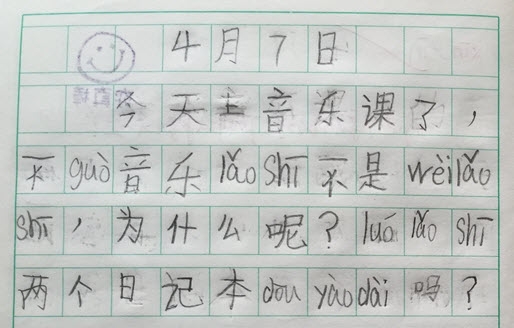 4月7日
今天主音乐课了，
不guò音乐lǎo shī不是wèi lǎo
shī，为什么呢？luó lǎo shī
两个日记本dōu yào dài吗？